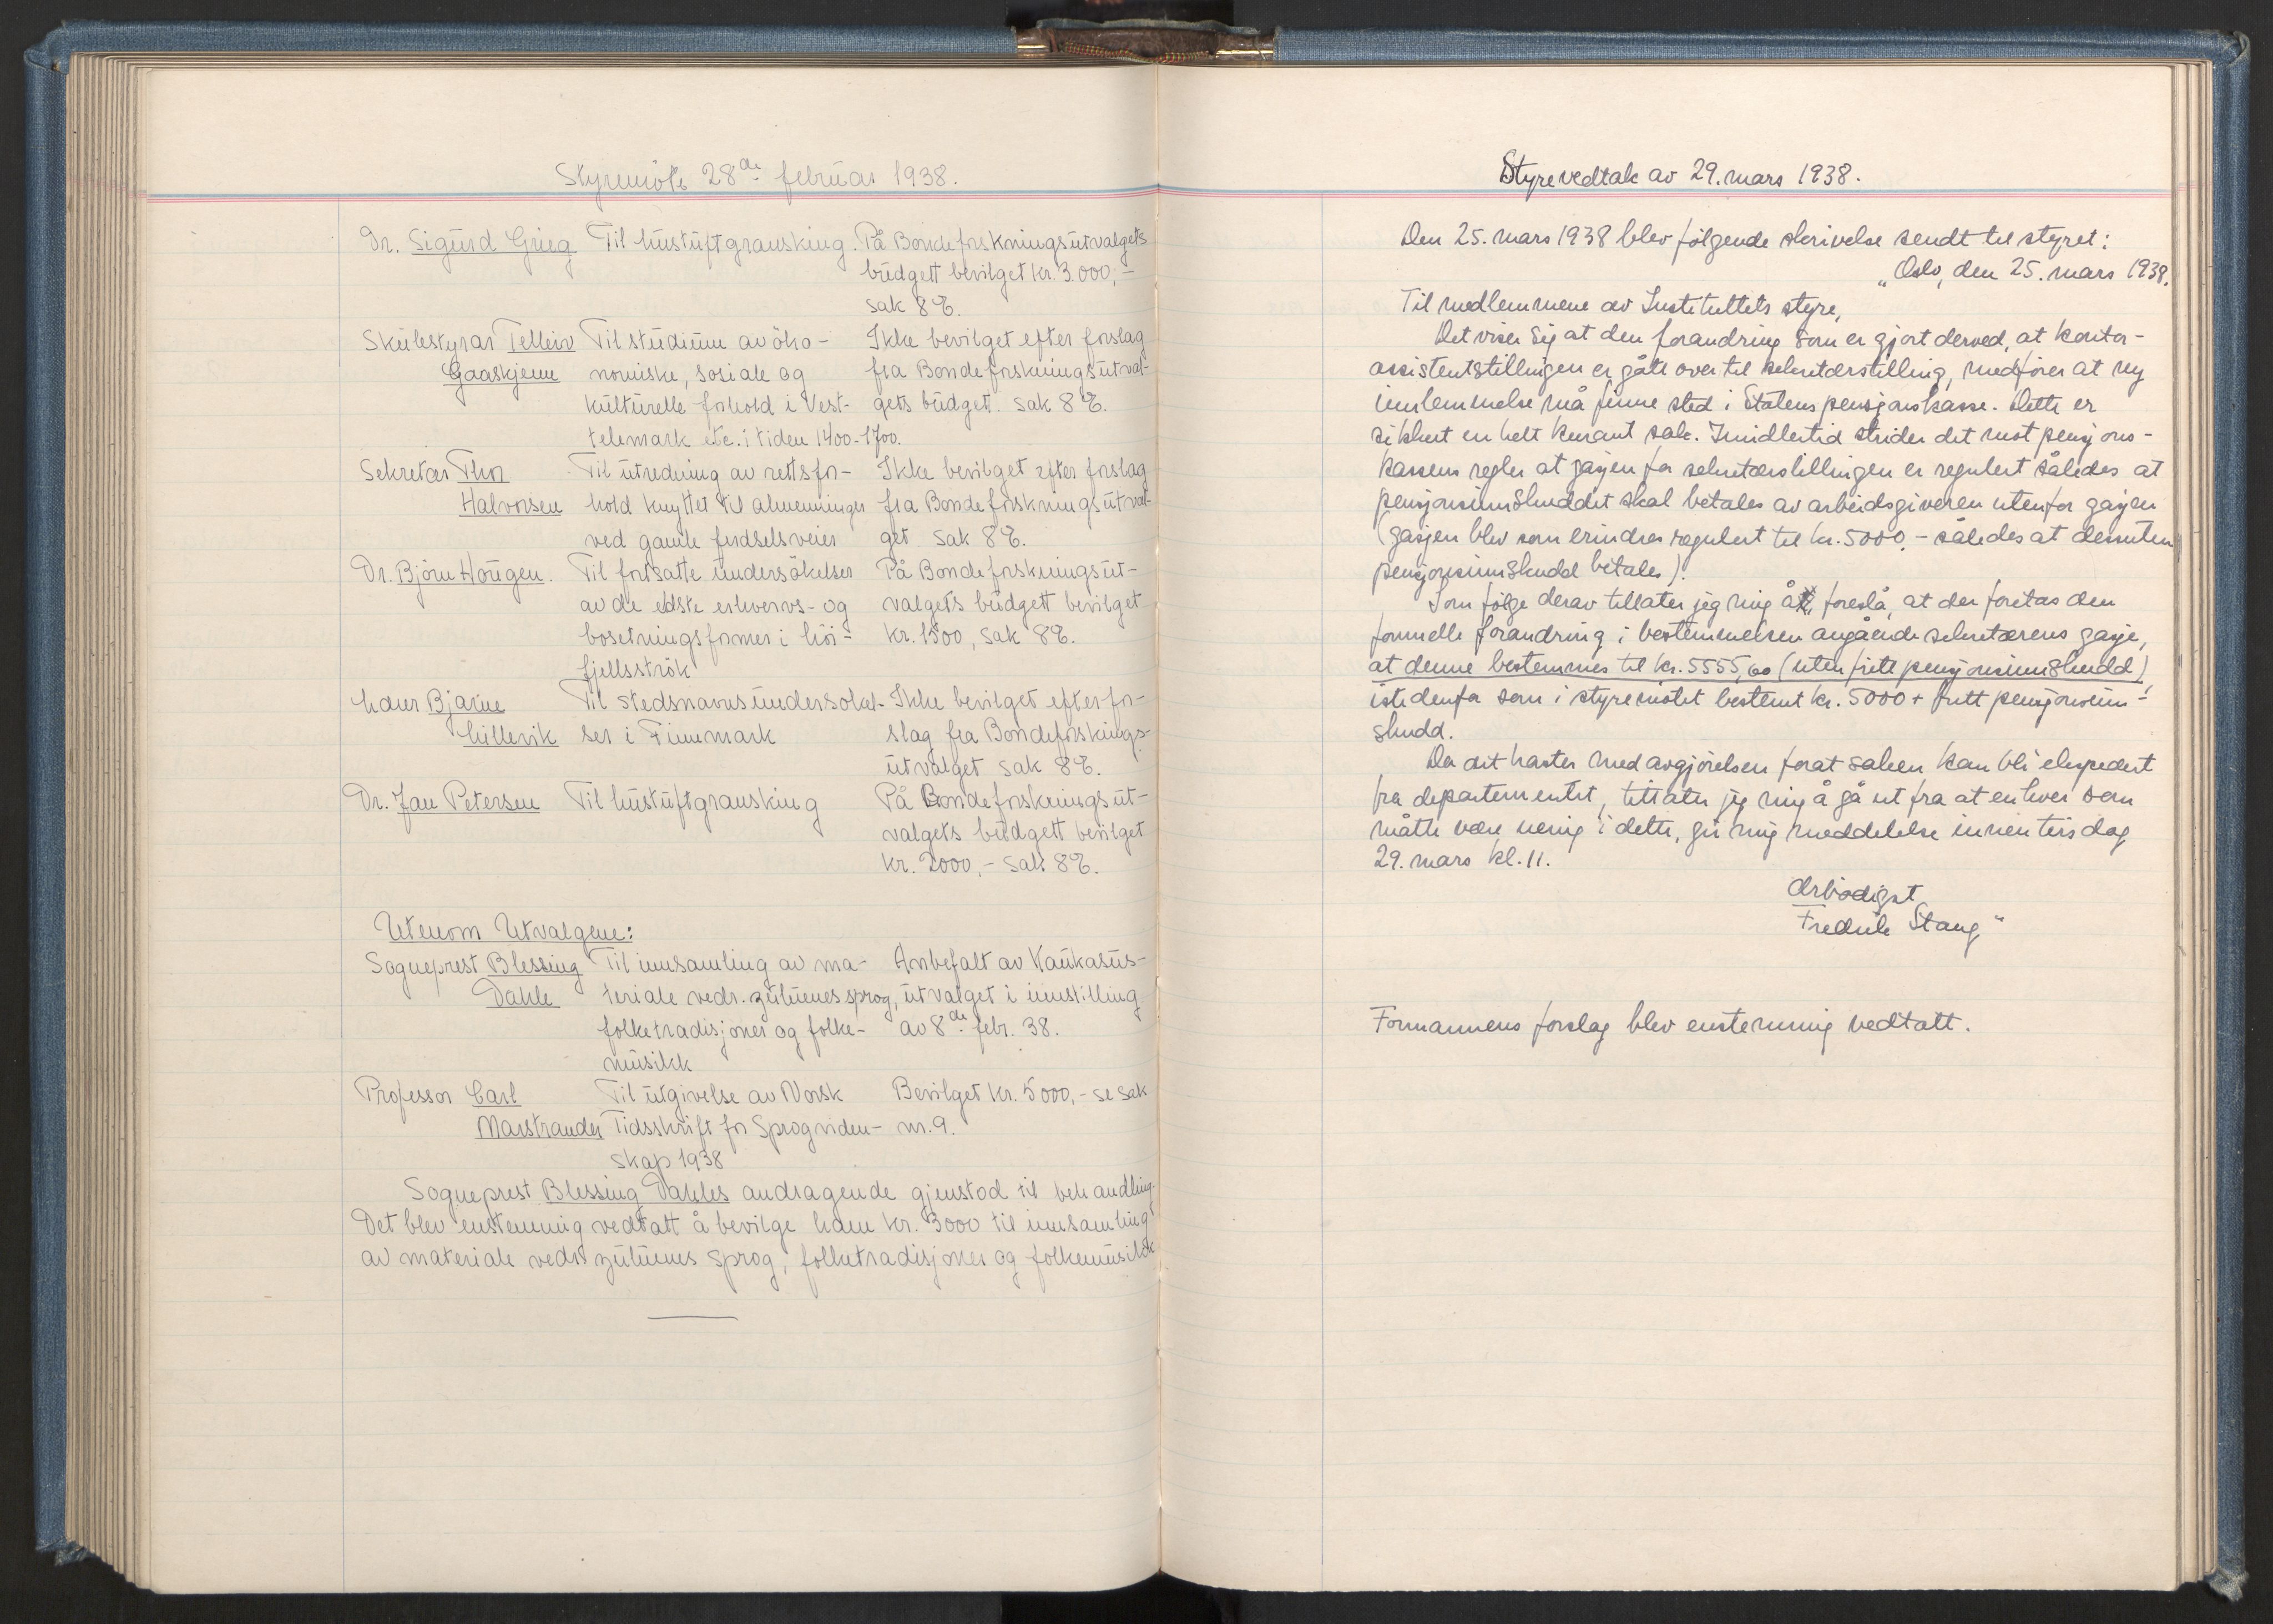 Styremöte 28de februar 1938.
Dr. Sigurd Grieg Til hustuftgransking. På Bondeforskningsutvalgets
budgett bevilget kr. 3.000,-
sak 8 c.
Skulestyrar Telleiv Til studium av öko- Ikke bevilget efter forslag
Gaaskjenn nomiske, sosiale og fra Bondeforskningsutval-
kulturelle forhold i Vest- gets budget. sak 8 c.
telemark etc. i tiden 1400-1700.
Sekretær Thor Til utredning av rettsfor- Ikke bevilget efter forslag
Halvorsen hold knyttet til almenninger fra Bondeforskningsutval-
ved gamle ferdselsveier get sak 8 c.
Dr. Björn Hougen. Til fortsatte undersökelser På Bondeforskningsut-
av de eldste erhvervs- og valgets budgett bevilget
bosetningsformer i höi- kr. 1500, sak 8 c.
fjellsströk
Lærer Bjarne Til stedsnavnsundersökel- Ikke bevilget efter for-
Lillevik ser i Finnmark slag fra Bondeforsknings-
utvalget sak 8 c.
Dr. Jan Petersen Til hustuftgransking På Bondeforskningsut-
valgets budgett bevilget
kr. 2000,- sak 8 c.
Utenom Utvalgene:
Sogneprest Blessing Til innsamling av ma- Anbefalt av Kaukasus-
Dahle teriale vedr. zuluenes sprog, utvalget i innstilling
folketradisjoner og folke- av 8de febr. 38.
musikk
Professor Carl Til utgivelse av Norsk Bevilget kr. 5000,- se sak
Marstrander Tidsskrift for Sprogviden- nr. 9.
skap 1938
Sogneprest Blessing Dahles andragende gjenstod til behandling.
Det blev enstemmig vedtatt å bevilge ham kr. 3000 til innsamling
av materiale vedr zuluenes sprog, folketradisjoner og folkemusikk
Styrevedtak av 29. mars 1938.
Den 25. mars 1938 blev følgende skrivelse sendt til styret:
"Oslo, den 25. mars 1938.
Til medlemmene av Instituttets styre,
Det viser sig at den forandring som er gjort derved, at kontor-
assistentstillingen er gått over til sekretærstilling, medfører at ny
innlemmelse må finne sted i Statens pensjonskasse. Dette er
sikkert en helt kurant sak. Imidlertid strider det mot pensjons-
kassens regler at gasjen for sekretærstillingen er regulert således at
pensjonsinnskuddet skal betales av arbeidsgiveren utenfor gasjen
(gasjen blev som erindres regulert til kr. 5000,- således at dessuten
pensjonsinnskudd betales).
Som følge derav tillater jeg mig å foreslå, at der foretas den
formelle forandring i bestemmelsen angående sekretærens gasje,
at denne bestemmes til kr. 5555,60 (uten fritt pensjonsinnskudd)
istedenfor som i styremøtet bestemt kr. 5000 + fritt pensjonsinn-
skudd.
Da det haster med avgjørelsen forat saken kan bli ekspedert
fra departementet, tillater jeg mig å gå ut fra at enhver som
måtte være uenig i dette, gir mig meddelelse innen tirsdag
29. mars kl. 11.
Ærbødigst
Fredrik Stang"
Formannens forslag blev enstemmig vedtatt.